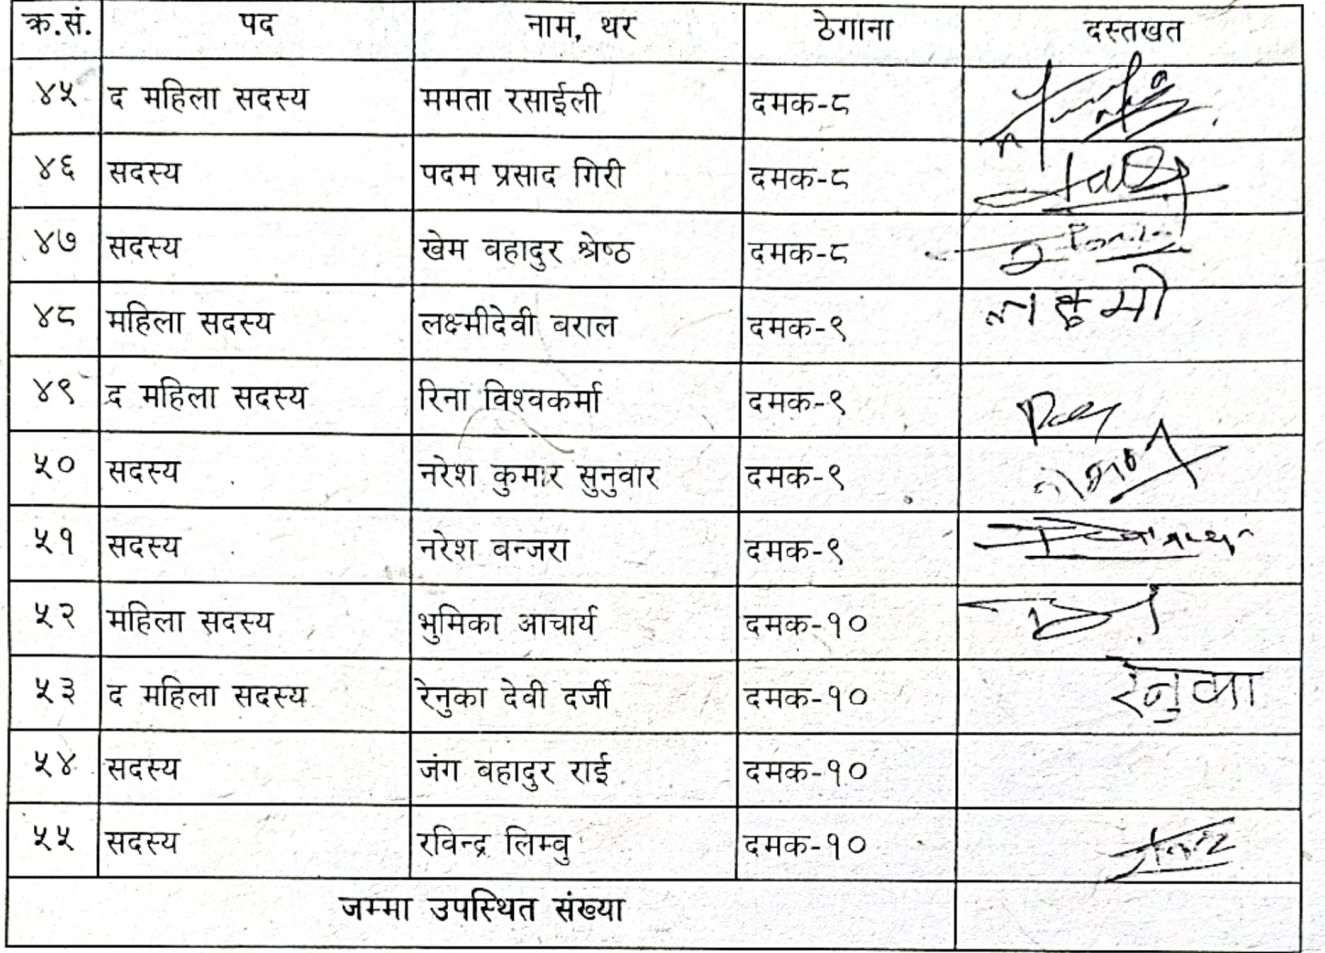 क्र.सं. पद नाम, थर ठेगाना दस्तखत
४५ द महिला सदस्य ममता रसाईली दमक-८
४६ सदस्य पदम प्रसाद गिरी दमक-८
४७ सदस्य खेम वहादुर श्रेष्ठ दमक-८
४८ महिला सदस्य लक्ष्मीदेवी वराल दमक-९ लक्ष्मी
४९ द महिला सदस्य रिना विश्वकर्मा दमक-९
५० सदस्य नरेश कुमार सुनुवार दमक-९
५१ सदस्य नरेश वन्जरा दमक-९
५२ महिला सदस्य भुमिका आचार्य दमक-१०
५३ द महिला सदस्य रेनुका देवी दर्जी दमक-१० रेनुका
५४ सदस्य जंग बहादुर राई दमक-१०
५५ सदस्य रविन्द्र लिम्वु दमक-१०
जम्मा उपस्थित संख्या